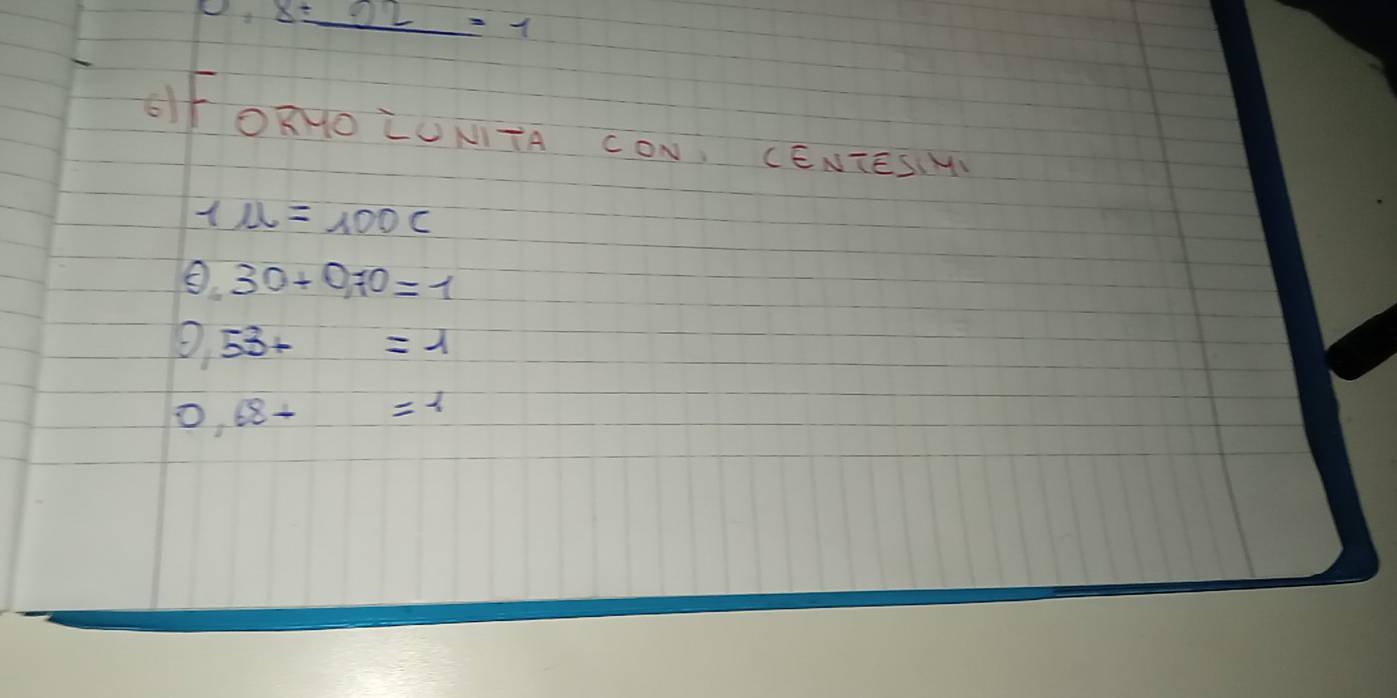 0,8+ 0,2 = 1
6) FORMO L'UNITA CON I CENTESIMI
1 u = 100 c
0,30+ 0,70 = 1
0,53+ = 1
0,68+ = 1